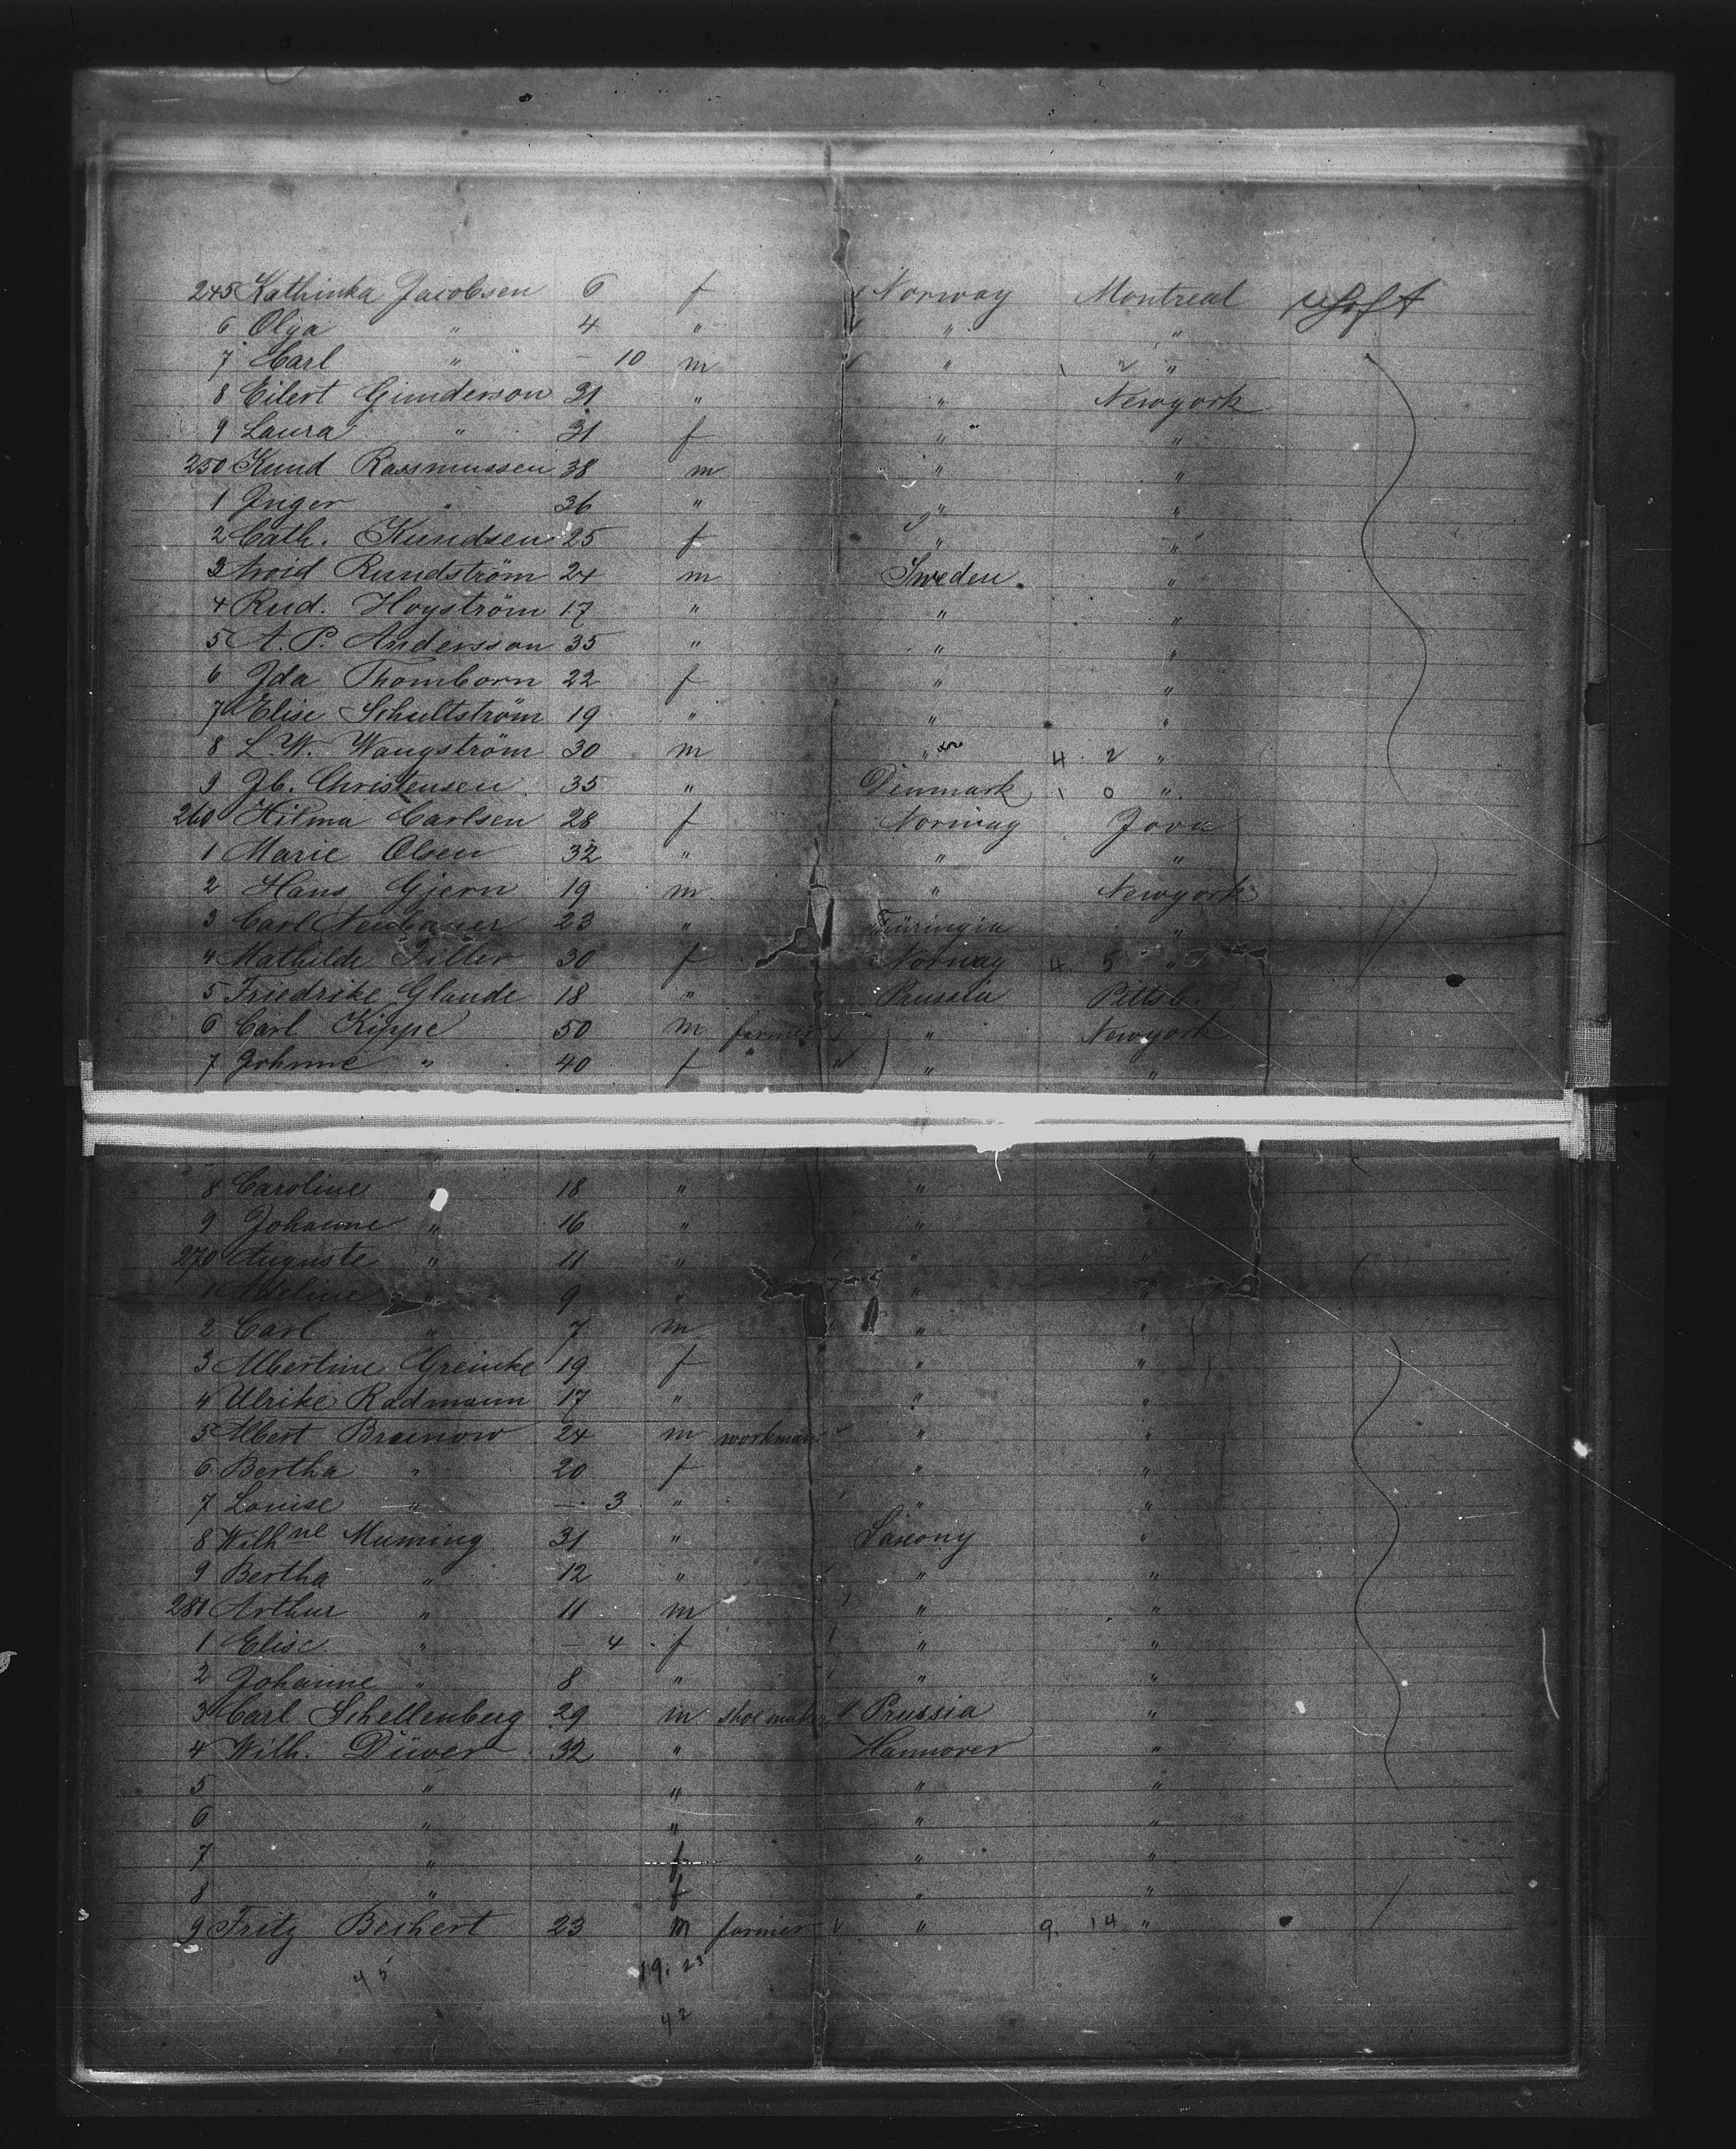 245 Kathinka Jacobsen 6 f Norway Montreal
6 Olga " 4 " " "
7 Carl " — 10 m " 2 "
8 Eilert Gunderson 31 " " Newyork
9 Laura " 31 f " "
250 Knud Rassmussen 38 m " "
1 Inger " 36 " " "
2 Cath. Knudsen 25 f " "
3 Arvid Rundström 24 m Sweden "
4 Rud. Hogström 17 " " "
5 A. P. Andersson 35 " " "
6 Ida Thomborn 22 f " "
7 Elise Schultström 19 " " "
8 L. W. Wangström 30 m " 4 2 "
9 Jb. Christensen 35 " Dinmark 0 "
260 Hilma Carlsen 28 f Norway Jova
1 Marie Olsen 32 " " "
2 Hans Gjern 19 m " Newyork
3 Carl Neubauer 23 " Thüringia "
4 Mathilde Filler 30 f Norway 4 5 "
5 Friedrike Glaude 18 " Prussia Pittsb.
6 Carl Kippe 50 m farmer " Newyork
7 Johnne " 40 f " "
8 Caroline " 18 " " "
9 Johanne " 16 " " "
270 Auguste " 11 " " "
1 Adeline " 9 " " "
2 Carl " 7 m " "
3 Albertine Greinke 19 f " "
4 Ulrike Radmann 17 " " "
5 Albert Braunow 24 m workman " "
6 Bertha " 20 f " "
7 Louise " — 3 " " "
8 Wilhne Muming 31 " Saxony "
9 Bertha " 12 " " "
281 Arthur " 11 m " "
1 Elise " — 4 f " "
2 Johanne " 8 " " "
3 Carl Schellenberg 29 m shoemaker Prussia "
4 Wilh. Düwer 32 " Hannover "
5 " " " "
6 " " " "
7 " f " "
8 " f " "
9 Fritz Beihert 23 m farmer " 9. 14 "
45 19. 23
42